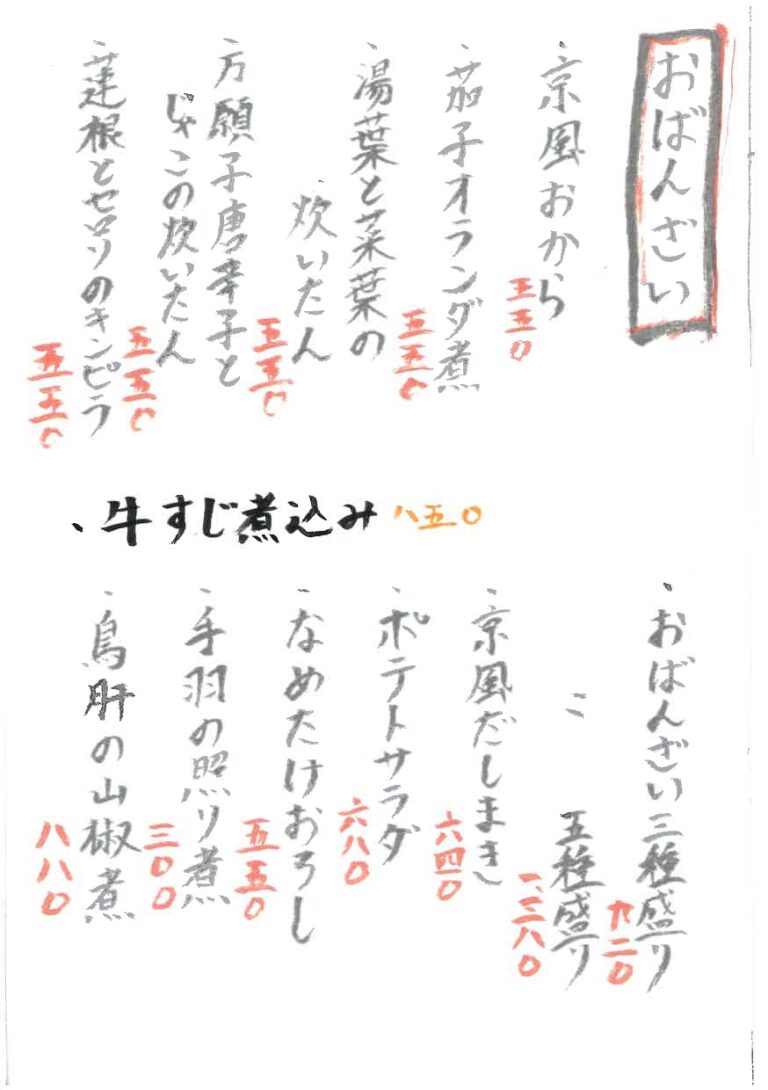 おばんざい
・京風おから
五五〇
・茄子オランダ煮
五五〇
・湯葉と菜葉の
炊いたん
五五〇
・万願寺唐辛子と
じゃこの炊いたん
五五〇
・蓮根とセロリのキンピラ
五五〇
・牛すじ煮込み 八五〇
・おばんざい三種盛り
九二〇
〃 五種盛り
一、三八〇
・京風だしまき
六四〇
・ポテトサラダ
六八〇
・なめたけおろし
五五〇
・手羽の照り煮
三〇〇
・鳥肝の山椒煮
八八〇